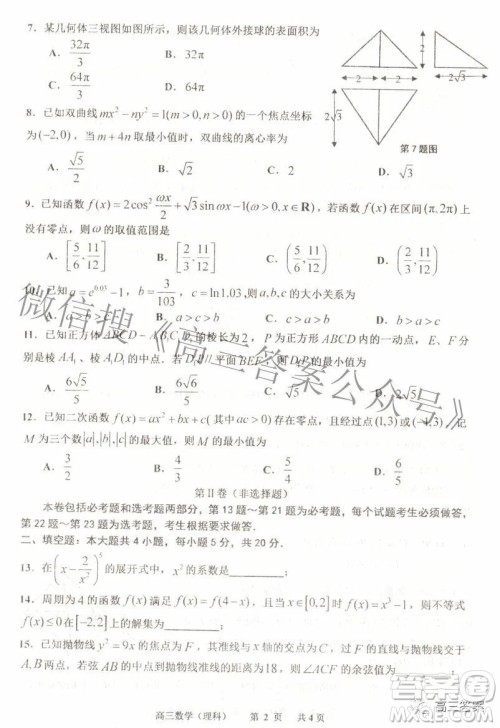 7．某几何体三视图如图所示，则该几何体外接球的表面积为
A．32π/3 B．32π
C．64π/3 D．64π
2
2 2 2√3
2√3
第7题图
8．已知双曲线 mx²－ny²＝1(m＞0,n＞0) 的一个焦点坐标
为(－2,0)，当 m＋4n 取最小值时，双曲线的离心率为
A．√5/2 B．√2 C．2 D．√3
9．已知函数 f(x)＝2cos² ωx/2＋√3sinωx－1(ω＞0,x∈R)，若函数 f(x) 在区间(π,2π)上
没有零点，则ω的取值范围是
A．[5/6,11/12] B．[2/3,11/12] C．(5/6,11/12) D．(2/3,11/12)
10．已知 a＝e^0.03－1，b＝3/103，c＝ln1.03，则 a,b,c 的大小关系为
b＞a＞c
a＞c＞b
11．已知正方体 ABCD－A₁B₁C₁D₁ 的棱长为2，P 为正方形 ABCD 内的一动点，
是棱 AA₁、棱 A₁D₁ 的中点．若 D₁P // 平面 BEF，则
A．6√5/5
2√5
12．已知二次函数 f(x)＝ax²＋bx＋c(其中 ac＞0) 存在零点，且经过点(1,3)或(－1,3)．记
M 为三个数|a|,|b|,|c|的最大值，则 M 的最小值为
A．3/2 B．4/3 C．5/4 D．6/5
第Ⅱ卷（非选择题）
本卷包括必考题和选考题两部分，第13题～第21题为必考题，每个试题考生必须作答，
第22题～第23题为选考题，考生根据要求做答．
二、填空题：本大题共4小题，每小题5分，共20分．
13．在(x－2/x²)⁵的展开式中，x²的系数是________；
14．周期为4的函数 f(x) 满足 f(x)＝f(4－x)，且当 x∈[0,2] 时
f(x)≤0 在[－2,2]上的解集为________；
15．已知抛物线 y²＝9x 的焦点为F，其准线与 x 轴的交点为C，过点C的直线与抛物线交于
A,B 两点，若弦 AB 的中点到抛物线准线的距离为18，则∠ACF 的余弦值为
高三数学（理科） 第 2 页 共4页
微信搜《高三答案公众号》
高三答案